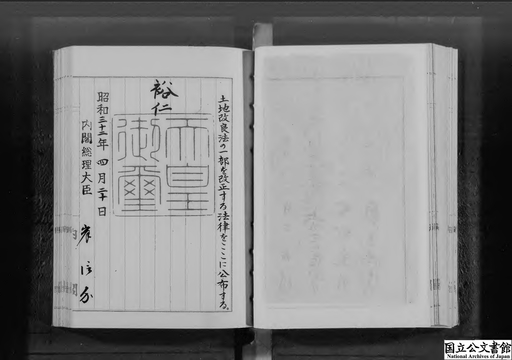 土地改良法の一部を改正する法律をここに公布する。
裕仁
天皇
御璽
昭和三十二年四月二十日
内閣総理大臣 岸信介
国立公文書館
National Archives of Japan